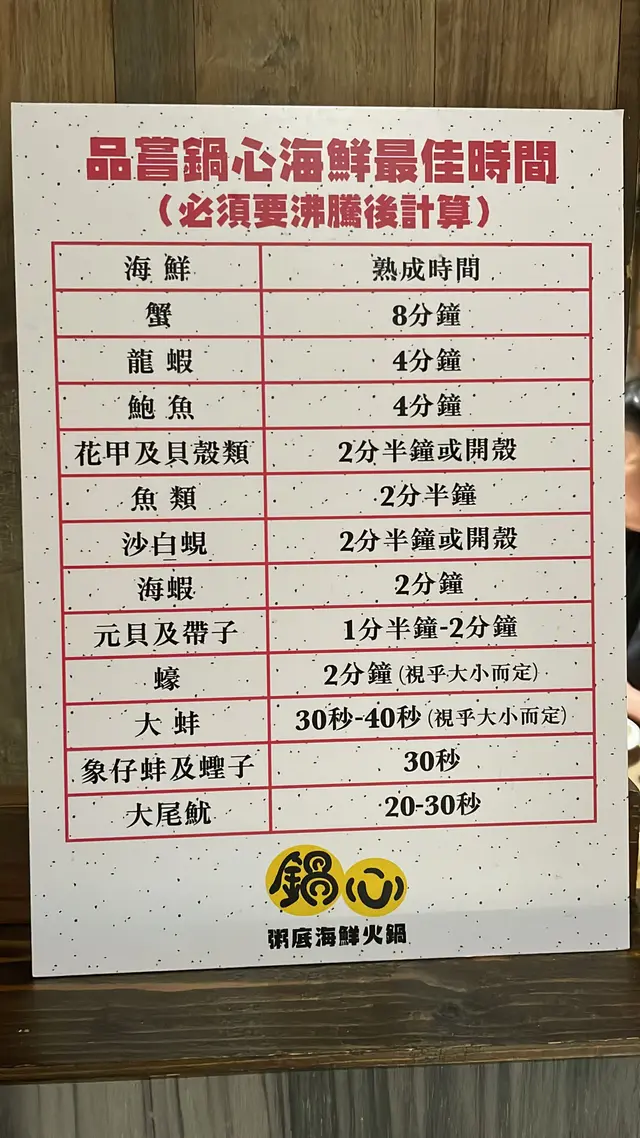 品嘗鍋心海鮮最佳時間
（必須要沸騰後計算）
海鮮 熟成時間
蟹 8分鐘
龍蝦 4分鐘
鮑魚 4分鐘
花甲及貝殼類 2分半鐘或開殼
魚類 2分半鐘
沙白蜆 2分半鐘或開殼
海蝦 2分鐘
元貝及帶子 1分半鐘-2分鐘
蠔 2分鐘(視乎大小而定)
大蚌 30秒-40秒(視乎大小而定)
象仔蚌及蟶子 30秒
大尾魷 20-30秒
鍋心
粥底海鮮火鍋